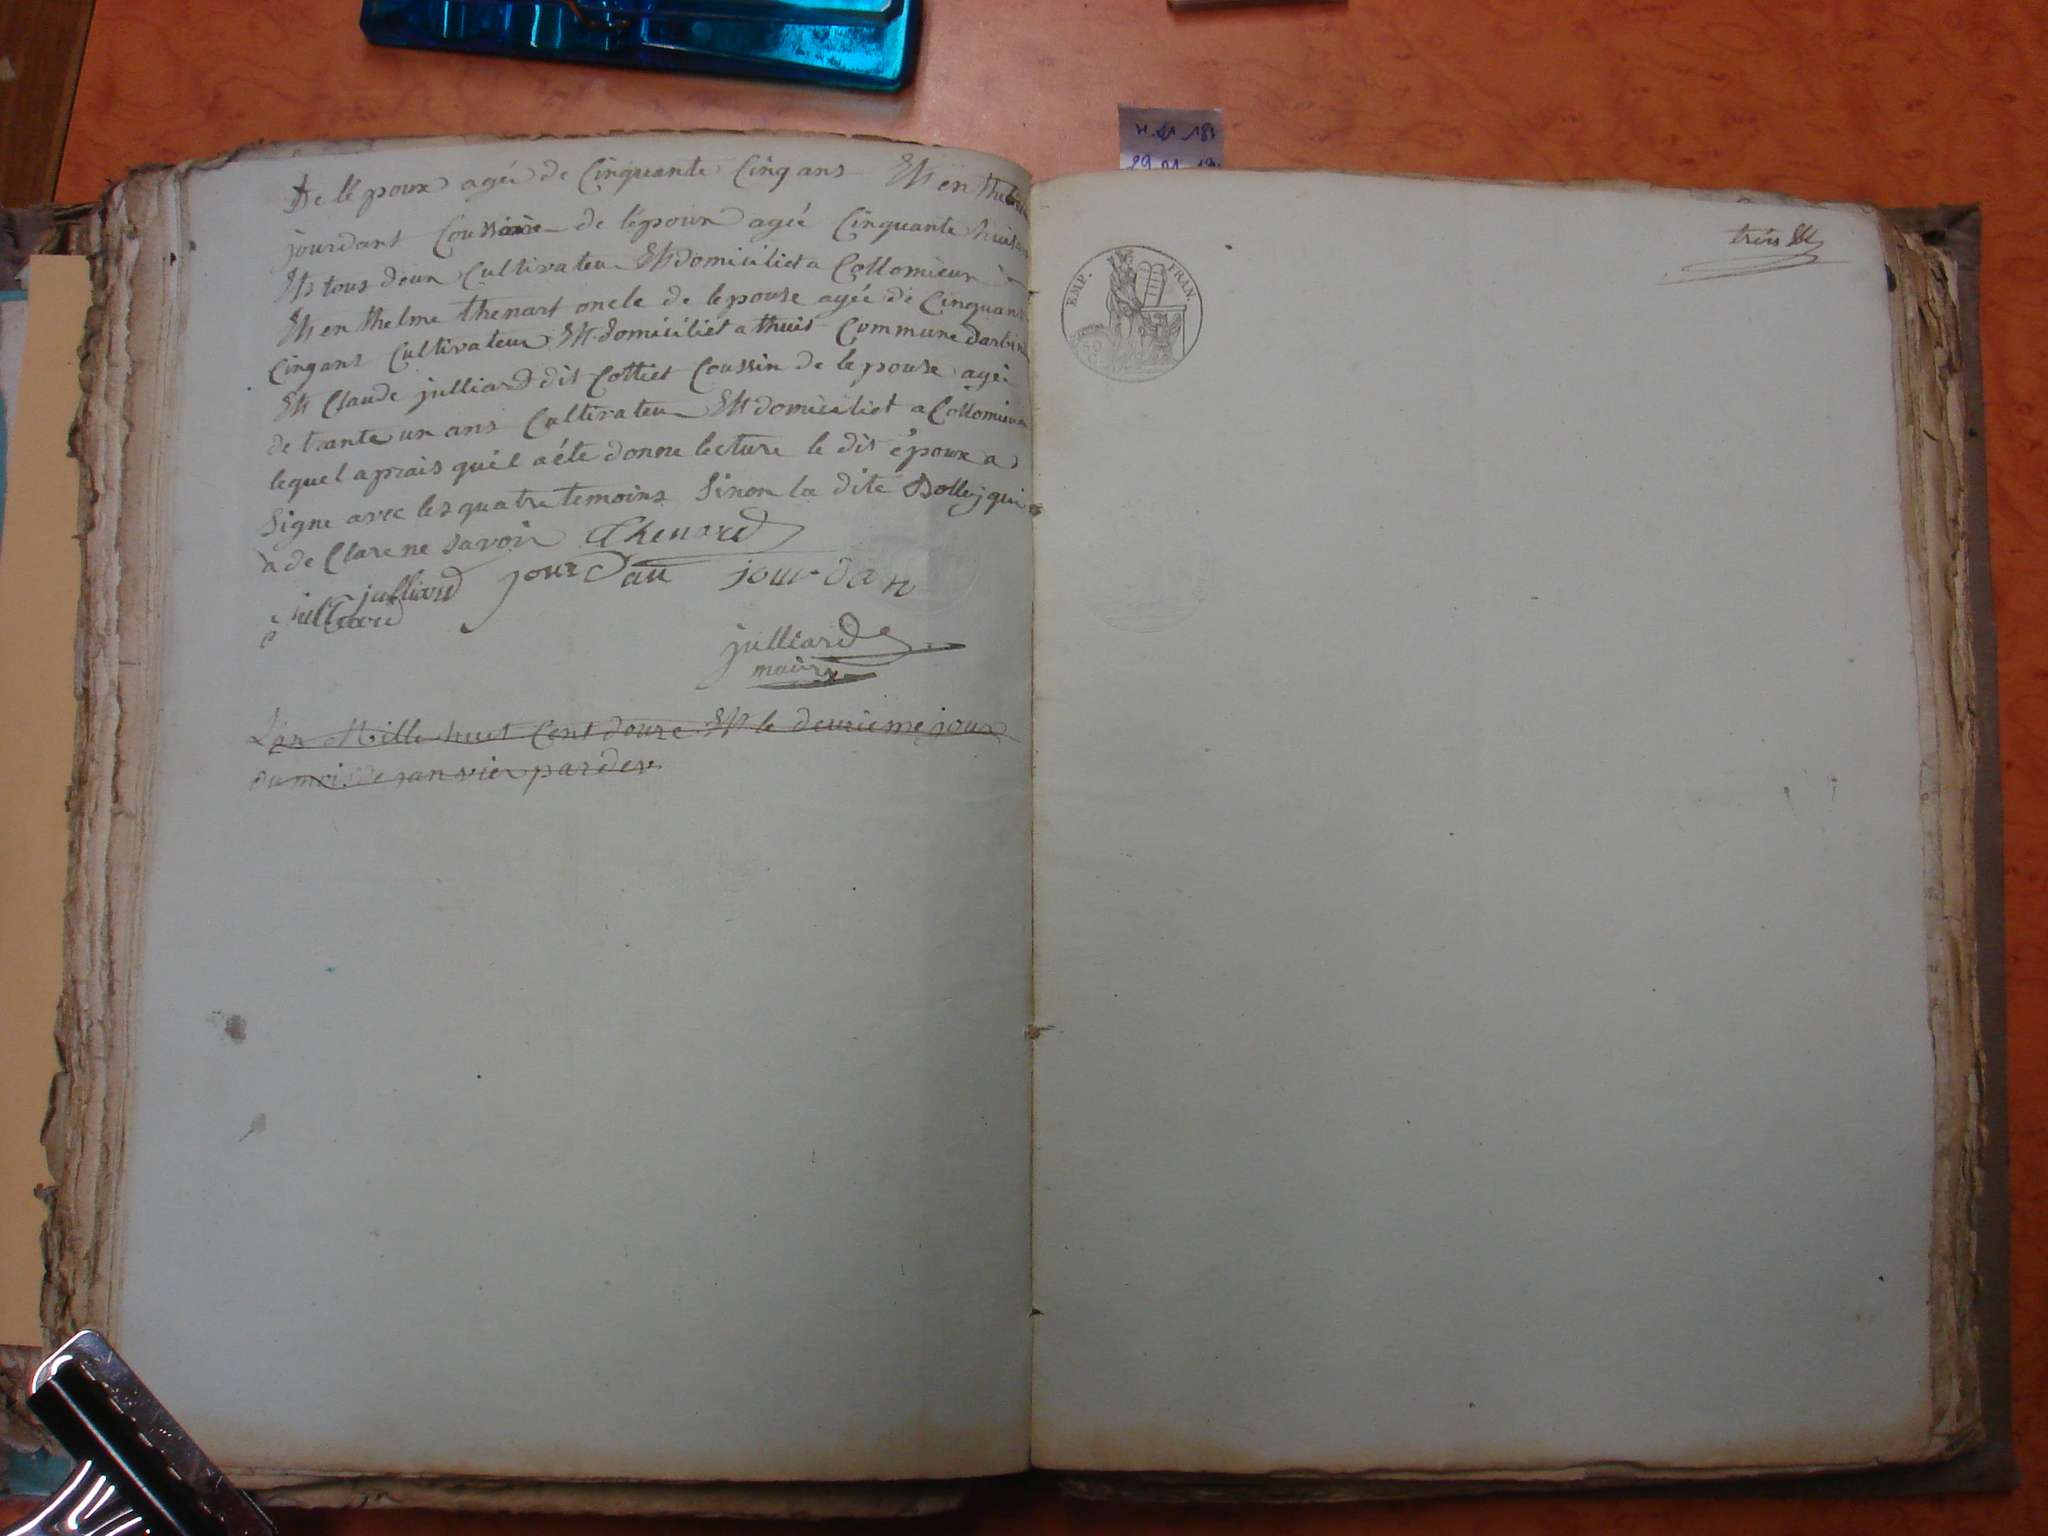 De lépoux agée de Cinquante Cinq ans Et en thelme
jourdant Coussin de lépoux agée Cinquante huit ans
Et tous deux Cultivateur Et domiciliet a Collomieux
Et en thelme thenart oncle de lepouse agée de Cinquante
Cinq ans Cultivateur Et domiciliet a thuit Commune darbin
Et Claude julliard dit Cottiet Coussin de lepouse agée
de trante un ans Cultivateur Et domiciliet a Collomieux
lequel aprais quil a été donne lecture le dit époux a
Signe avec les quatre temoins Sinon la dite Dolley qui
à de Clare ne savoir Thenard
julliard jourdan jourdan
julliard
julliard
maire
L'an Mille huit Cent douze Et le deuxieme jour
du mois de janvier pardev
EMP. FRAN.
trois